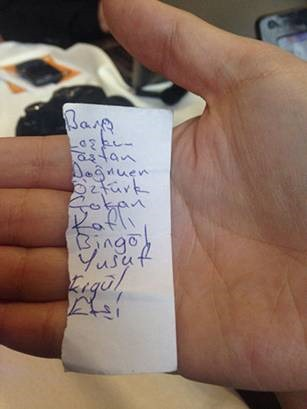 Barış
Coşkun
Taştan
Doğruer
Öztürk
Gökan
Kaflı
Bingöl
Yusuf
Ergül
Efşi